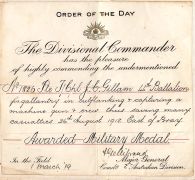 ORDER OF THE DAY
The Divisional Commander
has the pleasure
of highly commending the undermentioned
Battalion
for gallantry in outflanking & capturing a
machine gun & crew and saving many
casualties 26th August 1918
Awarded Military Medal.
In the Field
March '19
Major General
Australian Division